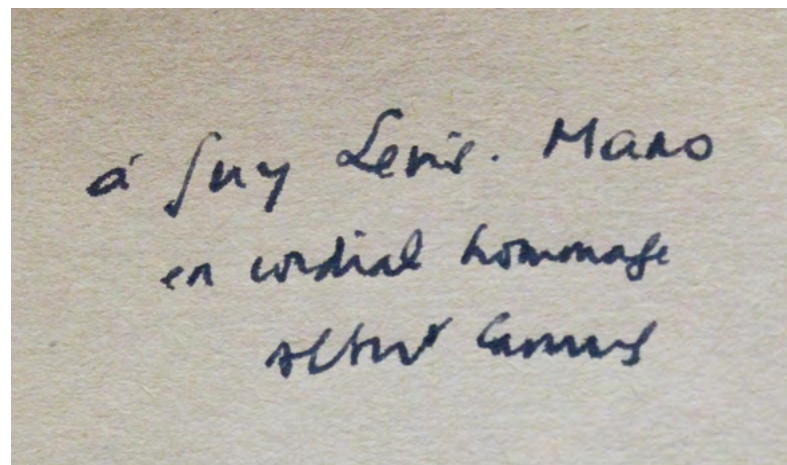 à Guy Levis. Mano
en cordial hommage
Albert Camus